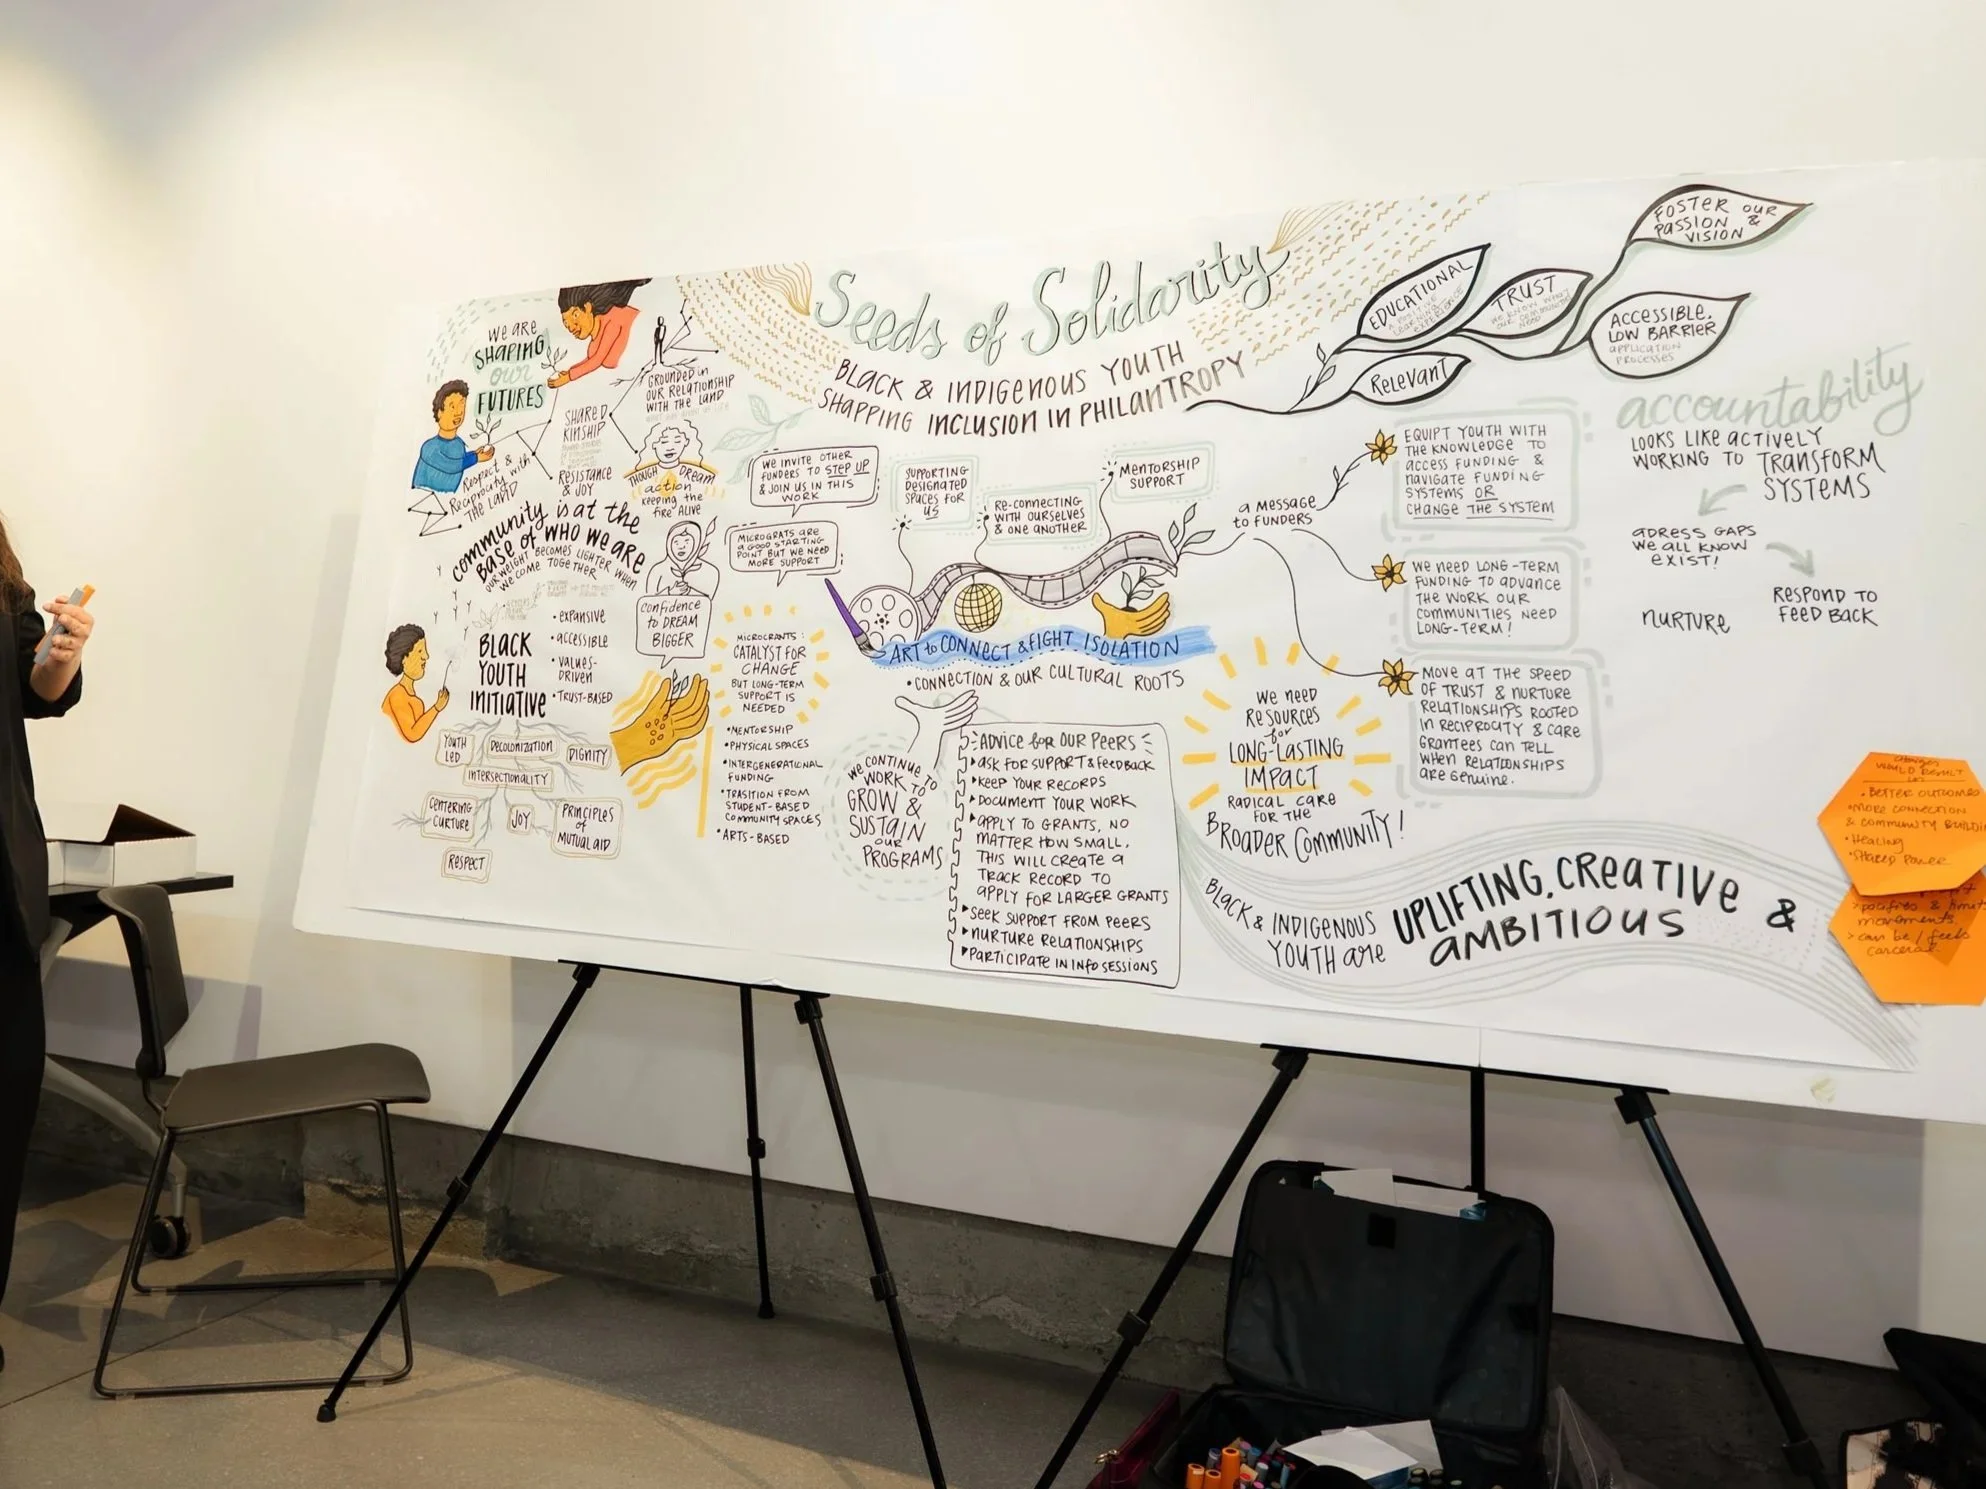 Seeds of Solidarity
BLACK & INDIGENOUS YOUTH
SHAPING INCLUSION IN PHILANTROPY
WE ARE
SHAPING
our
FUTURES
Respect &
Reciprocity with
THE LAND
SHARED
KINSHIP
RESISTANCE
& JOY
GROUNDED in
OUR RELATIONSHIP
WITH THE LAND
THOUGH DREAM
action
keeping the
fire ALIVE
community is at the
BASE of WHO WE ARE
OUR WEIGHT BECOMES LIGHTER WHEN
WE COME TOGETHER
CONFIDENCE
to DREAM
BIGGER
BLACK
YOUTH
INITIATIVE
• expansive
• accessible
• VALUES-
DRIVEN
• TRUST-BASED
YOUTH
LED
DECOLONIZATION
DIGNITY
INTERSECTIONALITY
CENTERING
CULTURE
JOY
PRINCIPLES
of
MUTUAL AID
RESPECT
WE INVITE OTHER
FUNDERS TO STEP UP
& JOIN US IN THIS
WORK
MICROGRATS ARE
A GOOD STARTING
POINT BUT WE NEED
MORE SUPPORT
MICROGRANTS:
CATALYST FOR
CHANGE
BUT LONG-TERM
SUPPORT IS
NEEDED
• MENTORSHIP
• PHYSICAL SPACES
• INTERGENERATIONAL
FUNDING
• TRASITION FROM
STUDENT-BASED
COMMUNITY SPACES
• ARTS-BASED
SUPPORTING
DESIGNATED
SPACES FOR
US
RE-CONNECTING
WITH OURSELVES
& ONE ANOTHER
MENTORSHIP
SUPPORT
ART to CONNECT & FIGHT ISOLATION
• CONNECTION & OUR CULTURAL ROOTS
WE CONTINUE TO
WORK TO
GROW &
SUSTAIN
OUR
PROGRAMS
ADVICE for OUR PEERS
ASK FOR SUPPORT & FEEDBACK
KEEP YOUR RECORDS
DOCUMENT YOUR WORK
APPLY TO GRANTS, NO
MATTER HOW SMALL,
THIS WILL CREATE A
TRACK RECORD TO
APPLY FOR LARGER GRANTS
SEEK SUPPORT FROM PEERS
NURTURE RELATIONSHIPS
PARTICIPATE IN INFO SESSIONS
EDUCATIONAL
A POSITIVE
LEARNING
EXPERIENCE
TRUST
WE KNOW WHAT
OUR COMMUNITIES
NEED
FOSTER OUR
PASSION &
VISION
RELEVANT
ACCESSIBLE,
LOW BARRIER
APPLICATION
PROCESSES
a MESSAGE
to FUNDERS
EQUIPT YOUTH WITH
THE KNOWLEDGE TO
ACCESS FUNDING &
NAVIGATE FUNDING
SYSTEMS OR
CHANGE THE SYSTEM
WE NEED LONG-TERM
FUNDING TO ADVANCE
THE WORK OUR
COMMUNITIES NEED
LONG-TERM!
MOVE AT THE SPEED
OF TRUST & NURTURE
RELATIONSHIPS ROOTED
IN RECIPROCITY & CARE
GRANTEES CAN TELL
WHEN RELATIONSHIPS
ARE GENUINE.
WE NEED
RESOURCES
for
LONG-LASTING
IMPACT
RADICAL CARE
FOR THE
BROADER COMMUNITY!
BLACK & INDIGENOUS
YOUTH are
UPLIFTING, CREATIVE &
AMBITIOUS
accountability
LOOKS LIKE ACTIVELY
WORKING TO TRANSFORM
SYSTEMS
ADRESS GAPS
WE ALL KNOW
EXIST!
NURTURE
RESPOND TO
FEED BACK
WOULD RESULT
• BETTER OUTCOMES
• MORE CONNECTION
& COMMUNITY
• Healing
• Shared Power
movements
> can be / feels